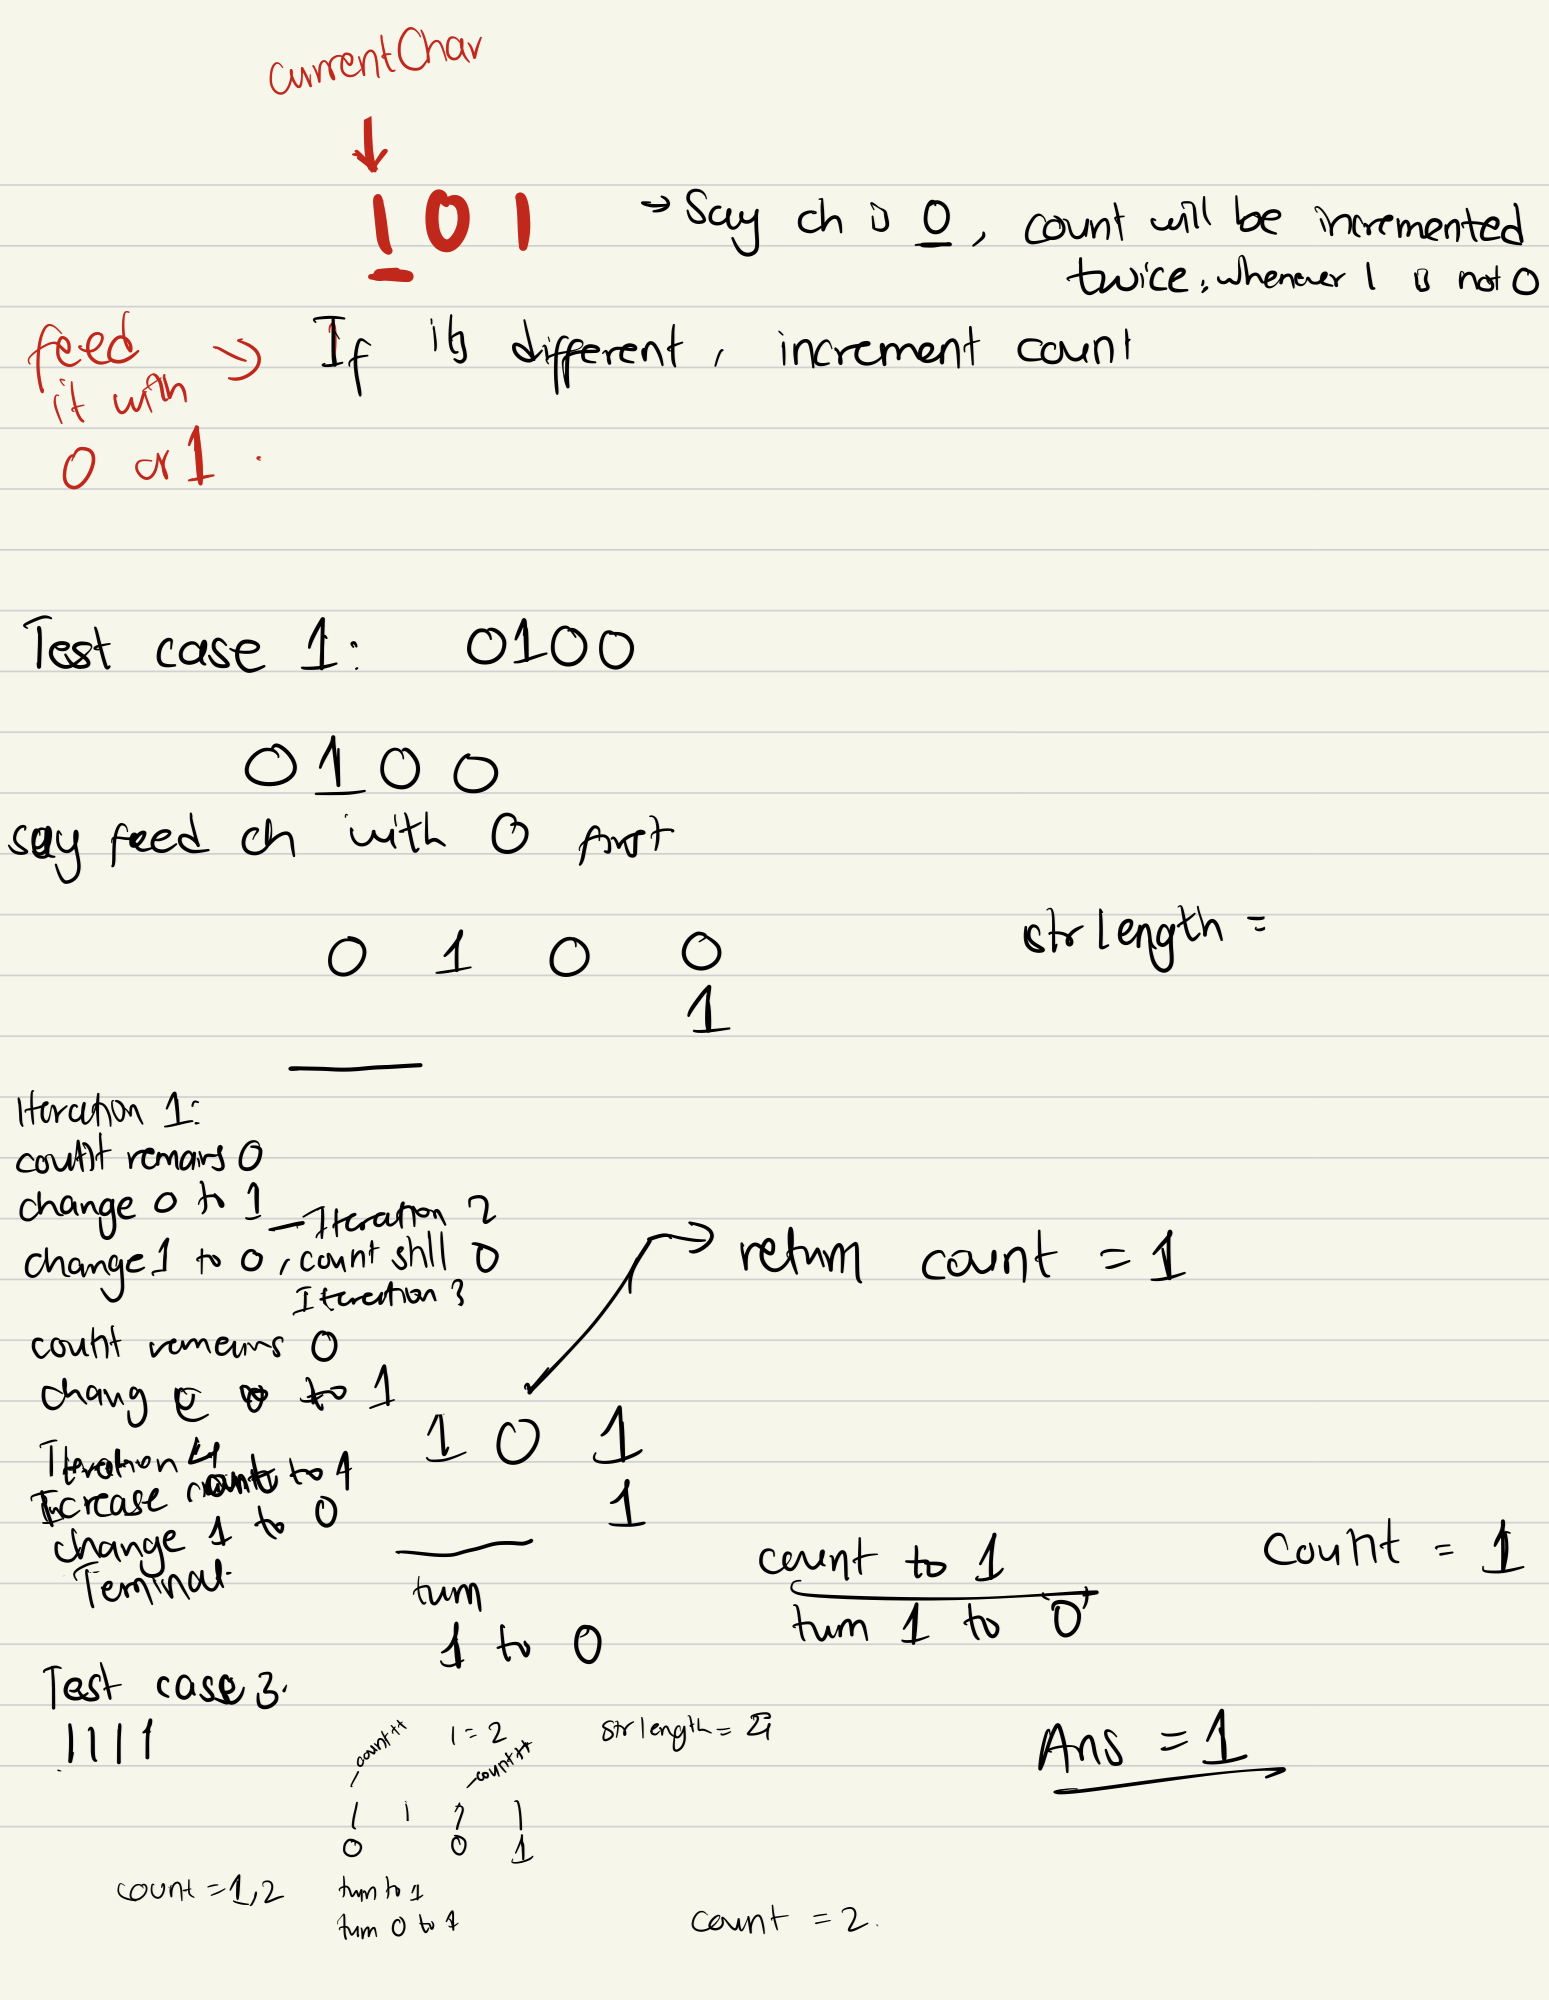 currentChar
1 0 1
→ Say ch is 0, count will be incremented
twice, whenever 1 is not 0
feed
it with
0 or 1.
→ If its different, increment count
Test case 1: 0100
0 1 0 0
say feed ch with 0 first
0 1 0 0
1
str length =
Iteration 1:
count remains 0
change 0 to 1
— Iteration 2
change 1 to 0, count still 0
Iteration 3
count remains 0
change 0 to 1
Iteration 4
Increase count to 1
change 1 to 0
Terminal
→ return count = 1
1 0 1
1
turn
1 to 0
count to 1
turn 1 to '0'
Count = 1
Test case 3.
1111
count++
i = 2
count++
str length =
Ans = 1
1 1 1 1
0 0 1
count = 1, 2
turn to 1
turn 0 to 1
count = 2.